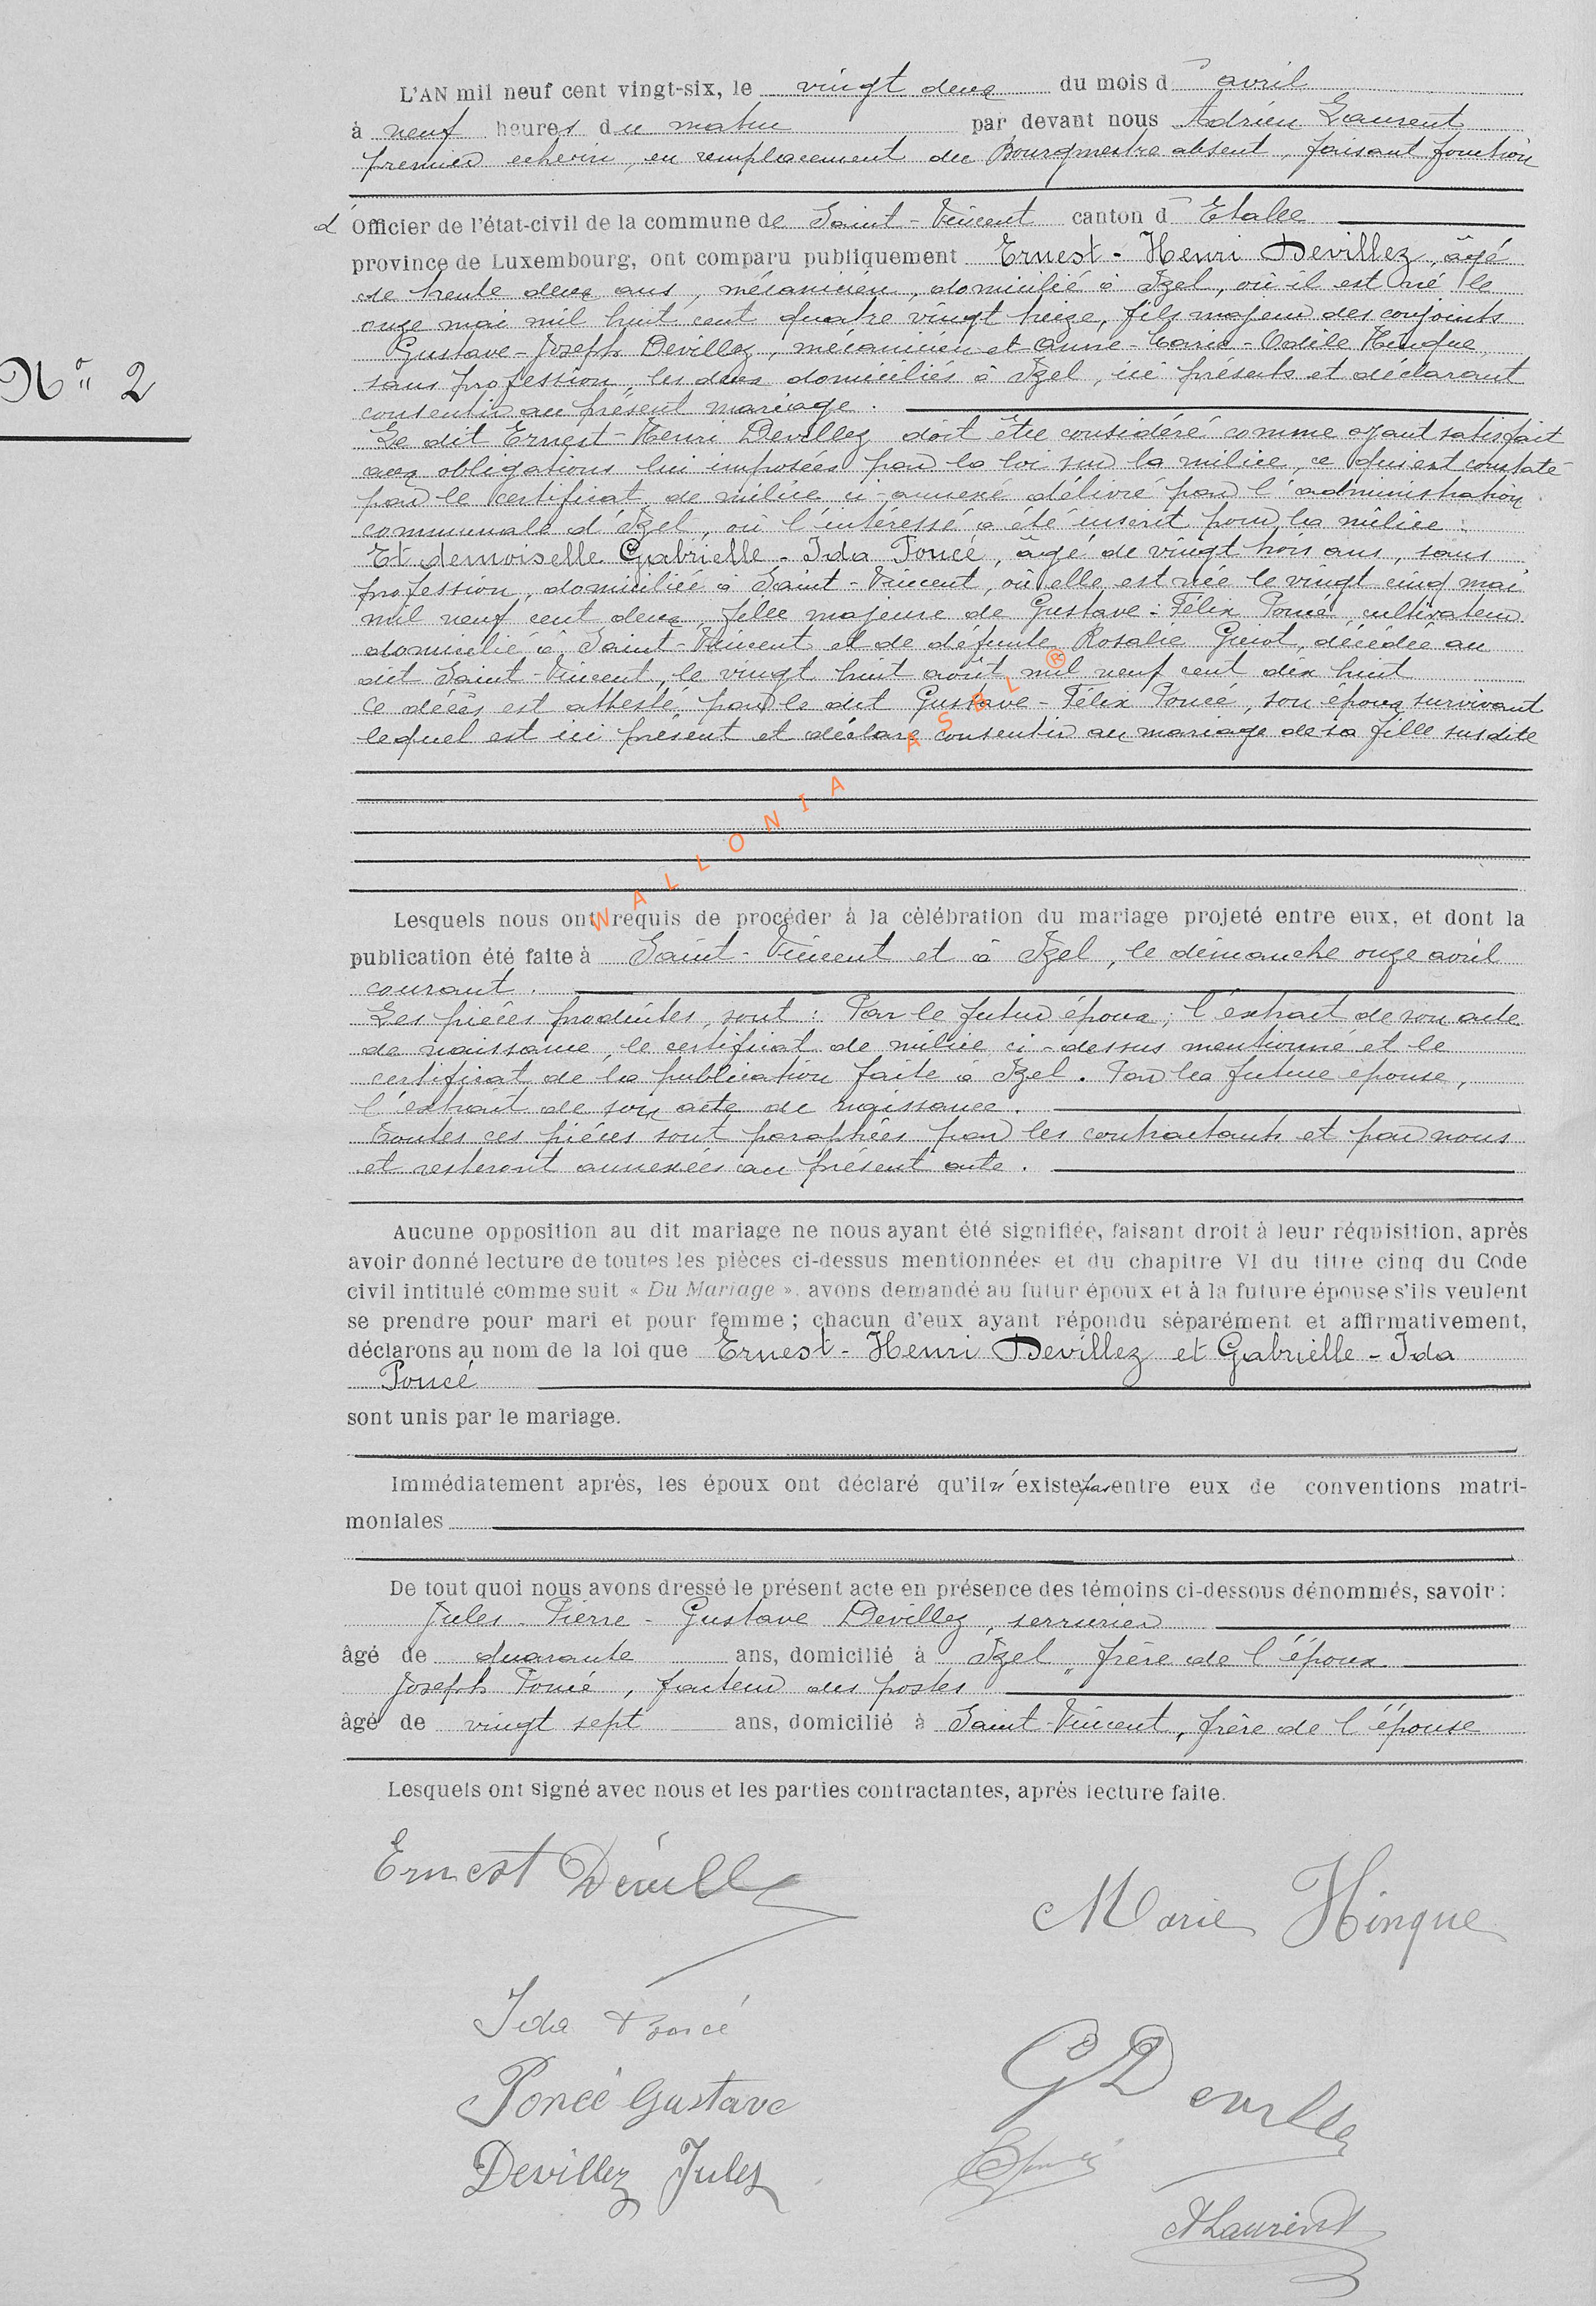 L'AN mil neuf cent vingt-six, le vingt deux du mois d' avril
à neuf heures du matin par devant nous Adrien Laurent
premier echevin, en remplacement du Bourgmestre absent, faisant fonction
d' Officier de l'état-civil de la commune de Saint-Vincent canton d' Etalle
province de Luxembourg, ont comparu publiquement Ernest-Henri Devillez, âgé
de trente deux ans, mécanicien, domicilié à Izel, où il est né le
onze mai mil huit cent quatre vingt treize, fils majeur des conjoints
Gustave-Joseph Devillez, mécanicien et Anne-Marie-Odile Hinque,
sans profession, les deux domiciliés à Izel, ici présents et déclarant
consentir au présent mariage.
N° 2
Le dit Ernest-Henri Devillez doit être considéré comme ayant satisfait
aux obligations lui imposées par la loi sur la milice, ce qui est constaté
par le certificat de milice ci-annexé délivré par l'administration
communale d'Izel, où l'intéressé a été inscrit pour la milice.
Et demoiselle Gabrielle-Ida Poncé, âgé de vingt trois ans, sans
profession, domiciliée à Saint-Vincent, où elle est née le vingt cinq mai
mil neuf cent deux, fille majeure de Gustave-Félix Poncé, cultivateur
domicilié à Saint-Vincent et de défunte Rosalie Guiot, décédée au
dit Saint-Vincent, le vingt huit août mil neuf cent dix huit
Ce décès est attesté par le dit Gustave-Félix Poncé, son époux survivant
lequel est ici présent et déclare consentir au mariage de sa fille susdite
WALLONIA ASBL ®
Lesquels nous ont requis de procéder à la célébration du mariage projeté entre eux, et dont la
publication été faite à Saint-Vincent et à Izel, le dimanche onze avril
courant.
Les pièces produites, sont : Par le futur époux, l'extrait de son acte
de naissance, le certificat de milice ci-dessus mentionné et le
certificat de la publication faite à Izel. Par la future épouse,
l'extrait de son acte de naissance.
Toutes ces pièces sont paraphées par les contractants et par nous
et resteront annexées au présent acte.
Aucune opposition au dit mariage ne nous ayant été signifiée, faisant droit à leur réquisition, après
avoir donné lecture de toutes les pièces ci-dessus mentionnées et du chapitre VI du titre cinq du Code
civil intitulé comme suit « Du Mariage ». avons demandé au futur époux et à la future épouse s'ils veulent
se prendre pour mari et pour femme ; chacun d'eux ayant répondu séparément et affirmativement,
déclarons au nom de la loi que Ernest-Henri Devillez et Gabrielle-Ida
Poncé
sont unis par le mariage.
Immédiatement après, les époux ont déclaré qu'il n'existe pas entre eux de conventions matri-
moniales
De tout quoi nous avons dressé le présent acte en présence des témoins ci-dessous dénommés, savoir :
Jules-Pierre-Gustave Devillez, serrurier
âgé de quarante ans, domicilié à Izel, frère de l'époux
Joseph Poncé, facteur des postes
âgé de vingt sept ans, domicilié à Saint-Vincent, frère de l'épouse
Lesquels ont signé avec nous et les parties contractantes, après lecture faite.
Ernest Devillez
Marie Hinque
Ida Poncé
G Devillez
Poncé Gustave
Devillez Jules
ALaurent